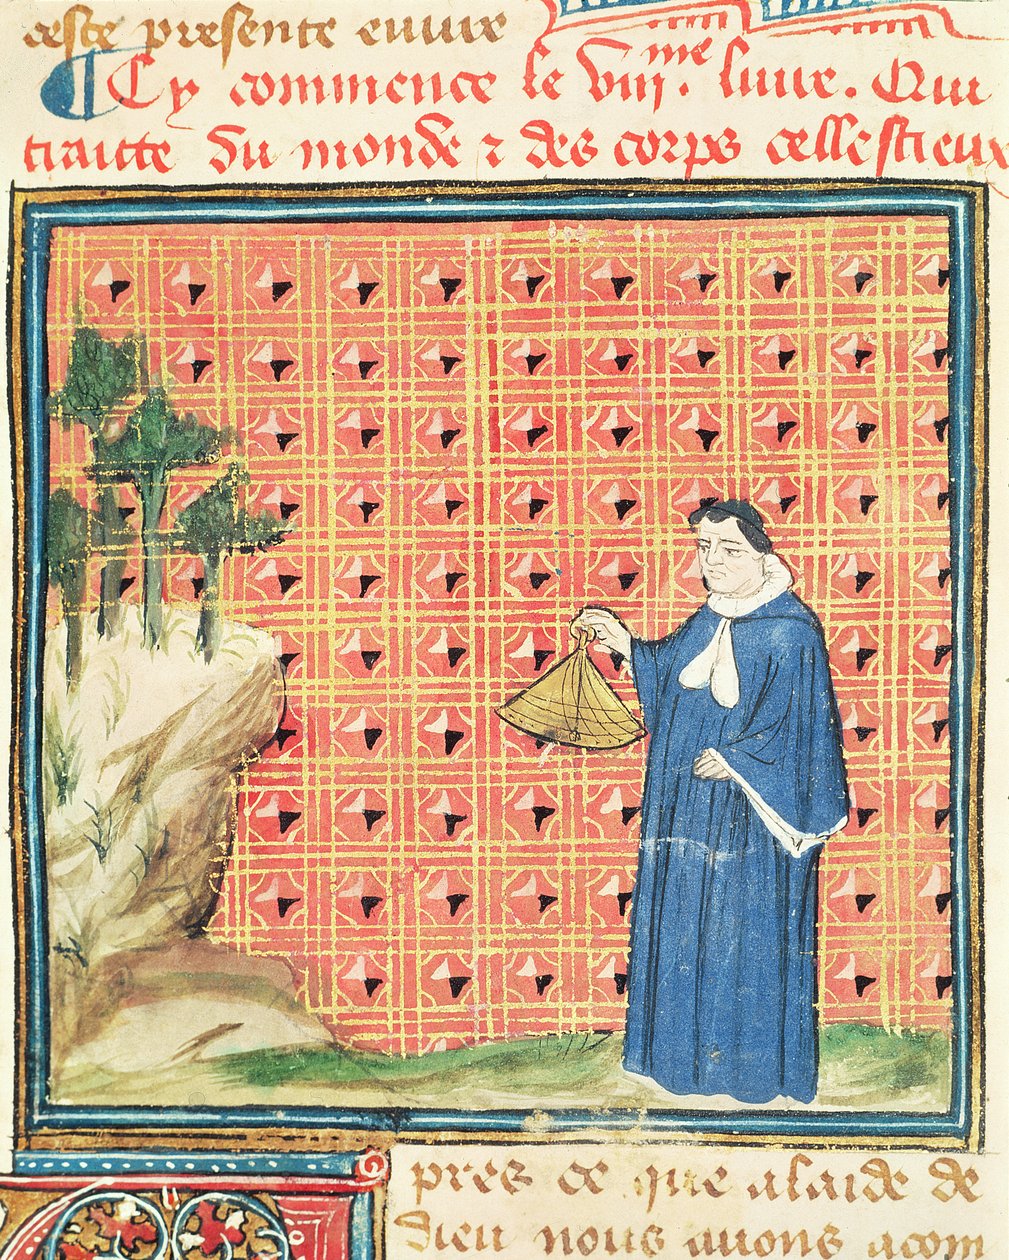 ceste presente euure
¶ Cy commence le viii.me liure. Qui
traitte du monde ⁊ des corps cellestieux
pres ce que alaide de
dieu nous auons acom